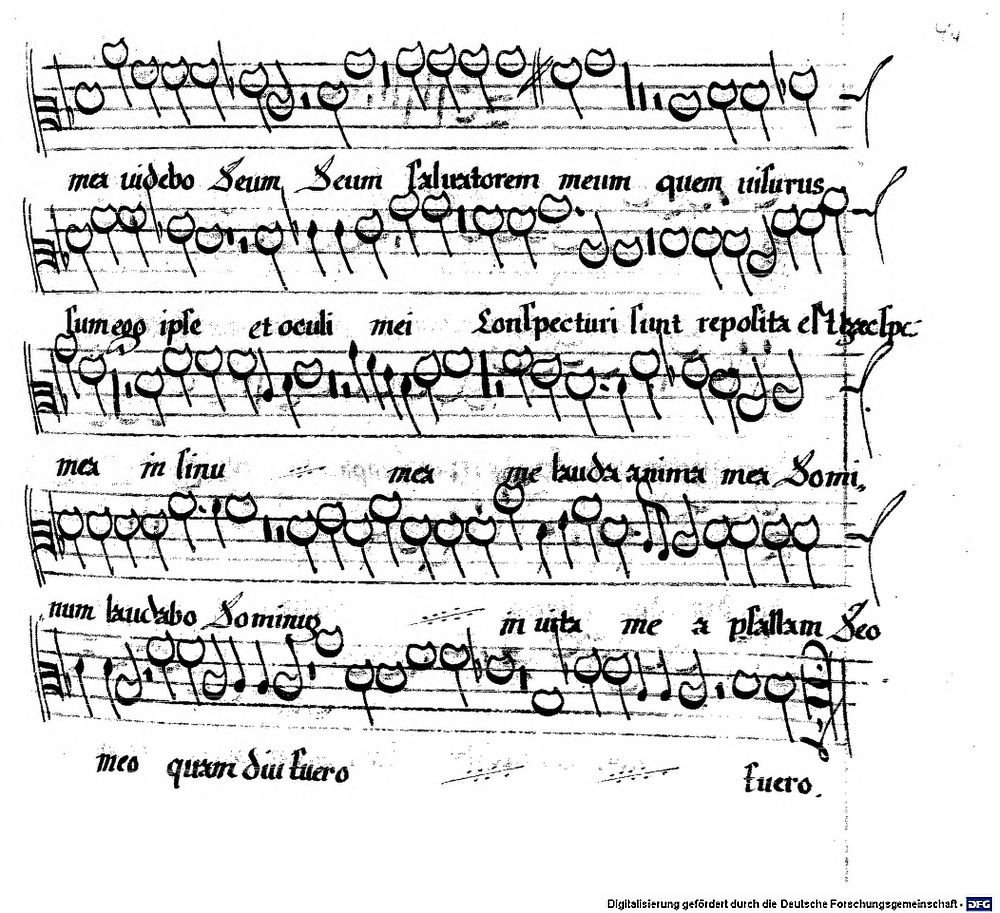 44
mea videbo Deum Deum salvatorem meum quem visurus
sum ego ipse et oculi mei Conspecturi sunt reposita est haec spe
mea in sinu mea me lauda anima mea Domi,
num laudabo Dominũ in vita me a psallam Deo
meo quam diu fuero fuero.
Digitalisierung gefördert durch die Deutsche Forschungsgemeinschaft - DFG